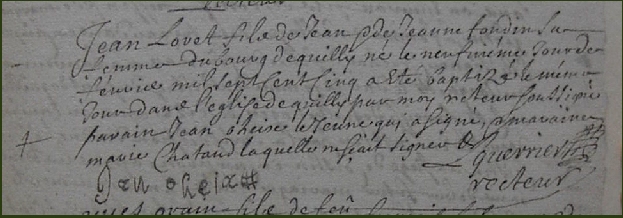 Jean Lovet fils de Jean & de Jeanne fondin sa
femme du bourg de quilly né le neufiéme Jour de
février mil sept Cent Cinq a été baptizé le méme
Jour dans l'église de quilly par moy recteur soussigné
parain Jean oheix le Jeune qui a signé, & maraine
marie Chataud laquelle ne sçait signer
guerrier
Jan oheix
recteur